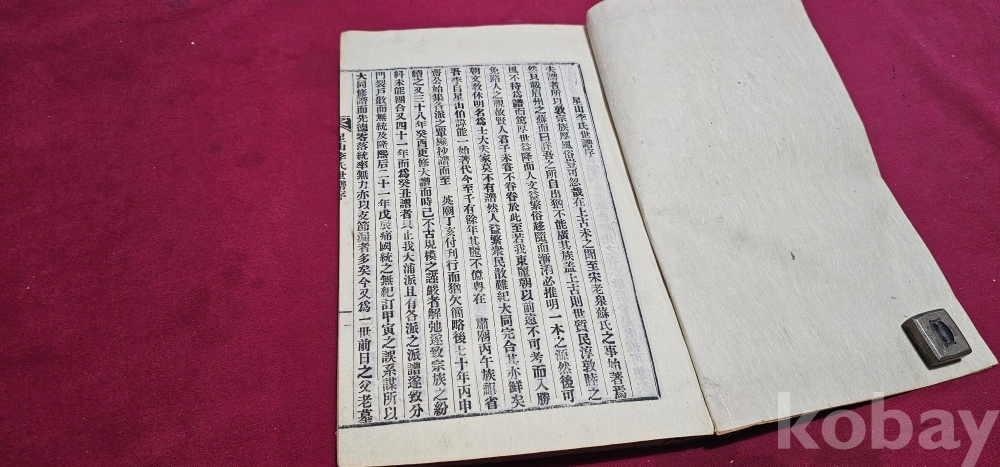 星山李氏世譜序
夫譜者所以敦宗族厚風俗豈可忽哉在上古未之聞至宋老泉蘇氏之事始著焉
然良載眉州之蘇而曰譜吾之所自出猶不能廣其族盖上古則世質民淳敦睦之
風不待爲譜而篤厚世益降而人文益繁俗趍隨而漸消必推明一本之源然後可
免路人之視故賢人君子未甞不眷眷於此至若我東麗朝以前遠不可考而入勝
朝文敎休明名爲士大夫家莫不有譜然人益繁衆民散難紀大同完合其亦鮮矣
吾李自星山伯諱能一始著代今至千有餘年其麗不億粤在 肅廟丙午族韶省
齋公始集各派之單糜抄譜而至 英廟丁亥付刊行而猶欠簡略後七十年丙申
續之又三十八年癸酉更修大譜而時已不古規模之謹嚴者解弛遂致宗族之紛
糾未能團合又四十一年而爲癸丑譜者只止我大浦派且有各派之派譜遂致分
門裂戶散而無統及隆熙后二十一年戊辰痛國統之無紀訂甲寅之誤系謀所以
大同修譜而先德寄落統率無力亦以支節漏者多矣今又爲一世前日之父老墓
星山李氏世譜序
一
kobay